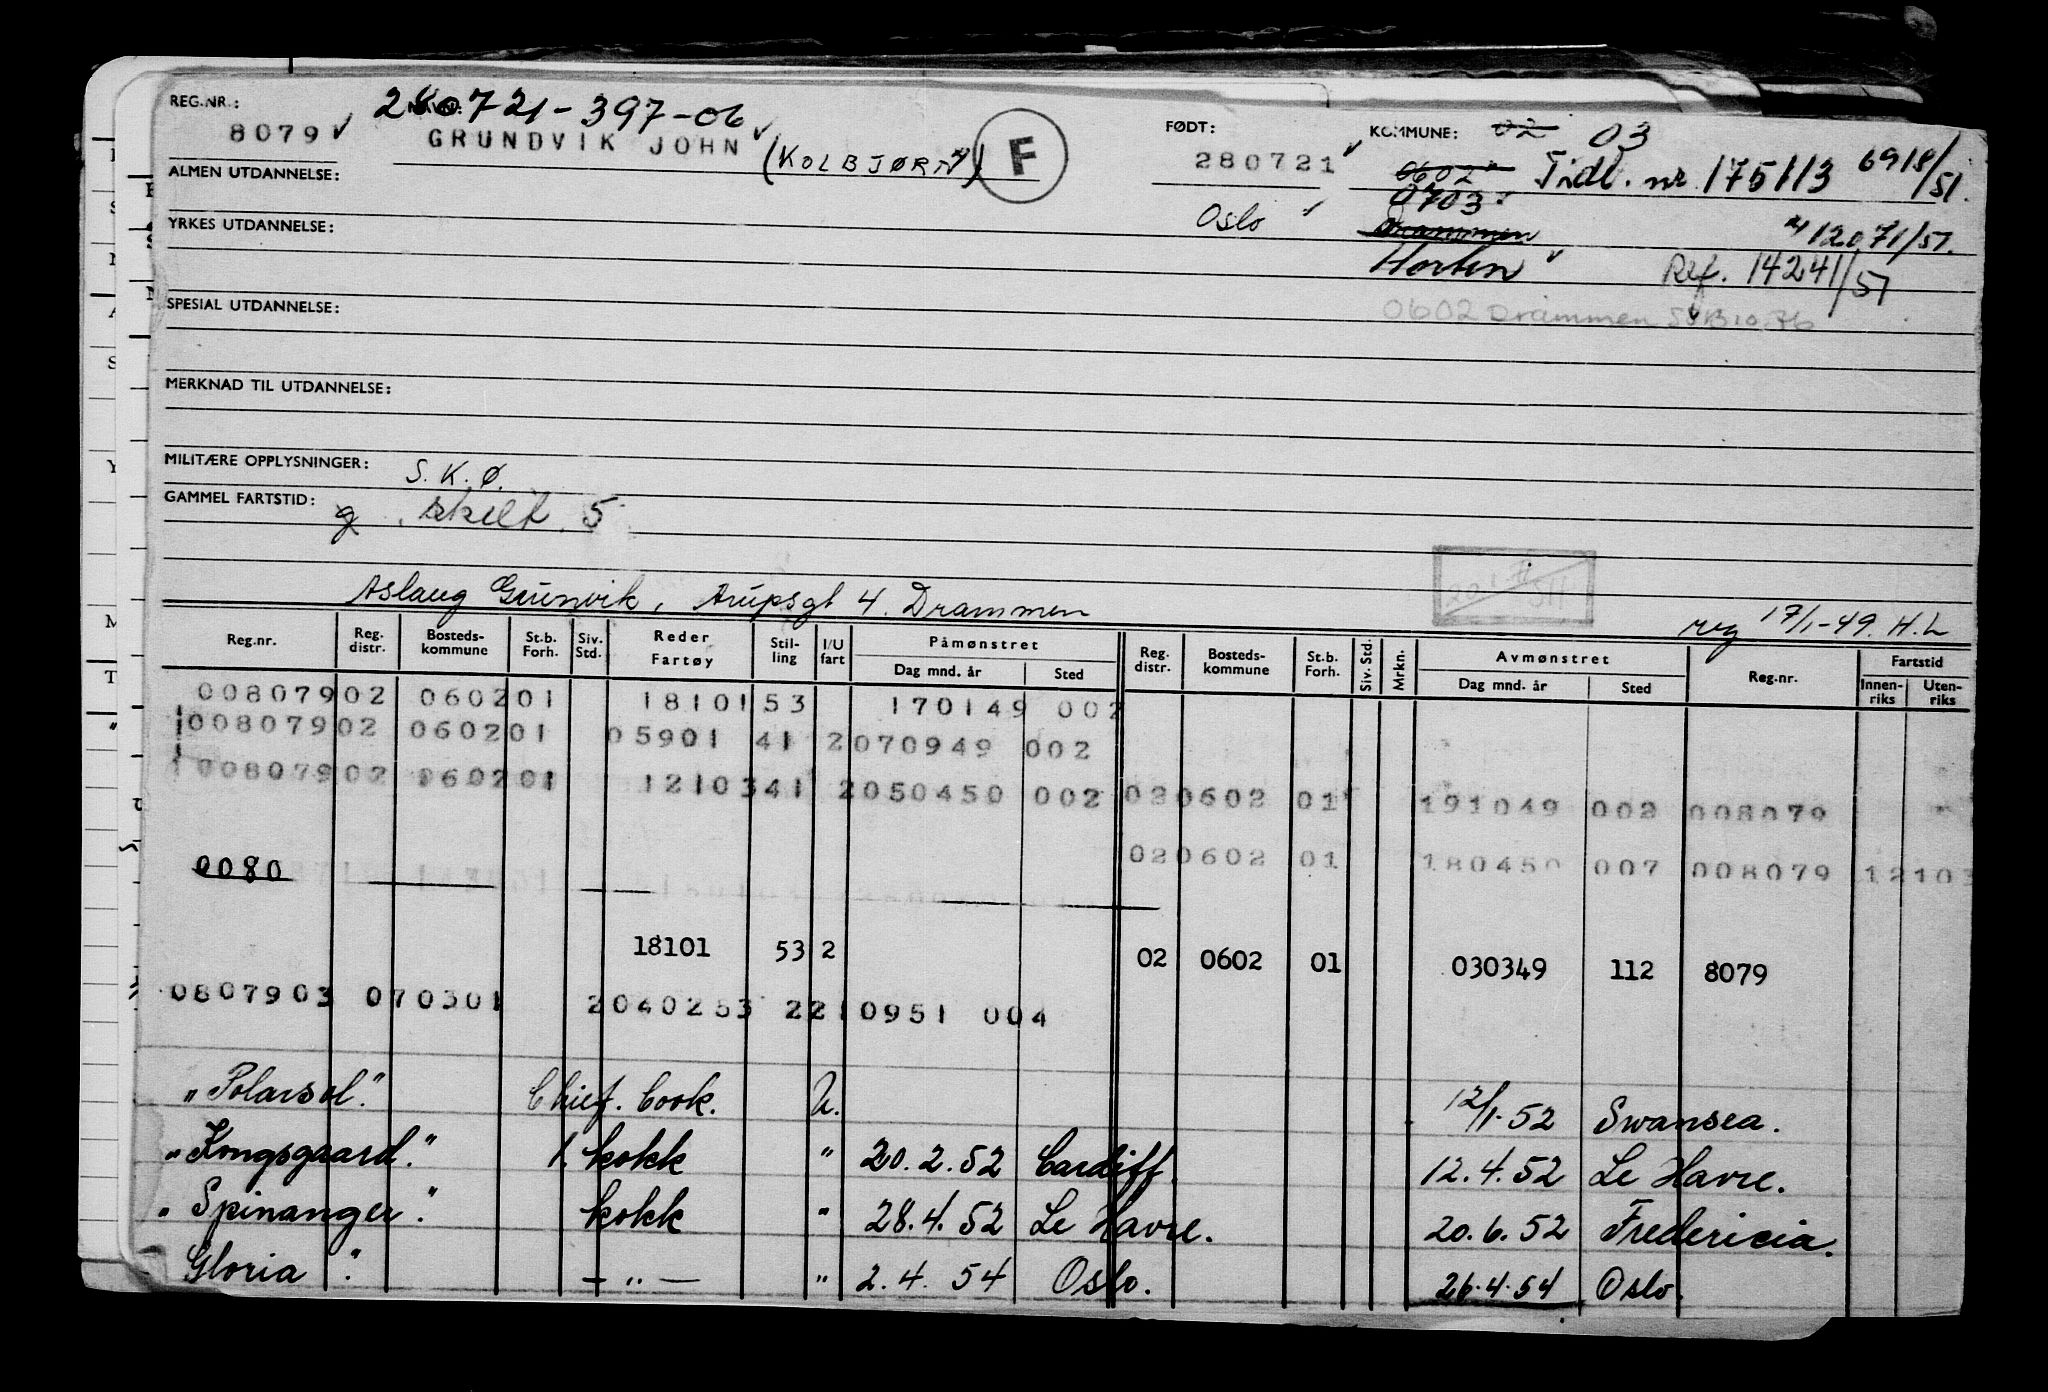 REG.NR.: 280721-397-06 FØDT: KOMMUNE: 02 03
8079 ✓ GRUNDVIK JOHN ✓ (KOLBJØRN) F 280721 ✓ 0602 Tidl. nr. 175113 6918/51.
ALMEN UTDANNELSE: 0703
YRKES UTDANNELSE: Oslo ✓ Drammen 12071/51.
Horten ✓ Ref. 14241/51
SPESIAL UTDANNELSE: 0602 Drammen
MERKNAD TIL UTDANNELSE:
MILITÆRE OPPLYSNINGER: S.K.Ø.
GAMMEL FARTSTID: skilt 5
Aslaug Grunvik, Arupsgt 4. Drammen reg 17/1-49. H.L
Reg.nr. Reg. distr. Bosteds-kommune St.b. Forh. Siv. Std. Reder Fartøy Stil-ling I/U fart Påmønstret Dag mnd. år Sted Reg. distr. Bosteds-kommune St.b. Forh. Siv. Std. Mrkn. Avmønstret Dag mnd. år Sted Reg.nr. Fartstid Innen-riks Uten-riks
00807902 060201 18101 53 170149 002
00807902 060201 05901 41 2070949 002
00807902 060201 12103 41 2050450 002 020602 01 191049 002 008079
020602 01 180450 007 008079 12103
0080
18101 53 2 02 0602 01 030349 112 8079
0807903 070301 2040253 2210951 004
"Polarsol". Chief. Cook. U. 12/1-52 Swansea.
"Kongsgaard". 1. kokk " 20.2.52 Cardiff 12.4.52 Le Havre.
"Spinanger". kokk " 28.4.52 Le Havre. 20.6.52 Fredericia.
Gloria". — " — " 2.4.54 Oslo. 26.4.54 Oslo.